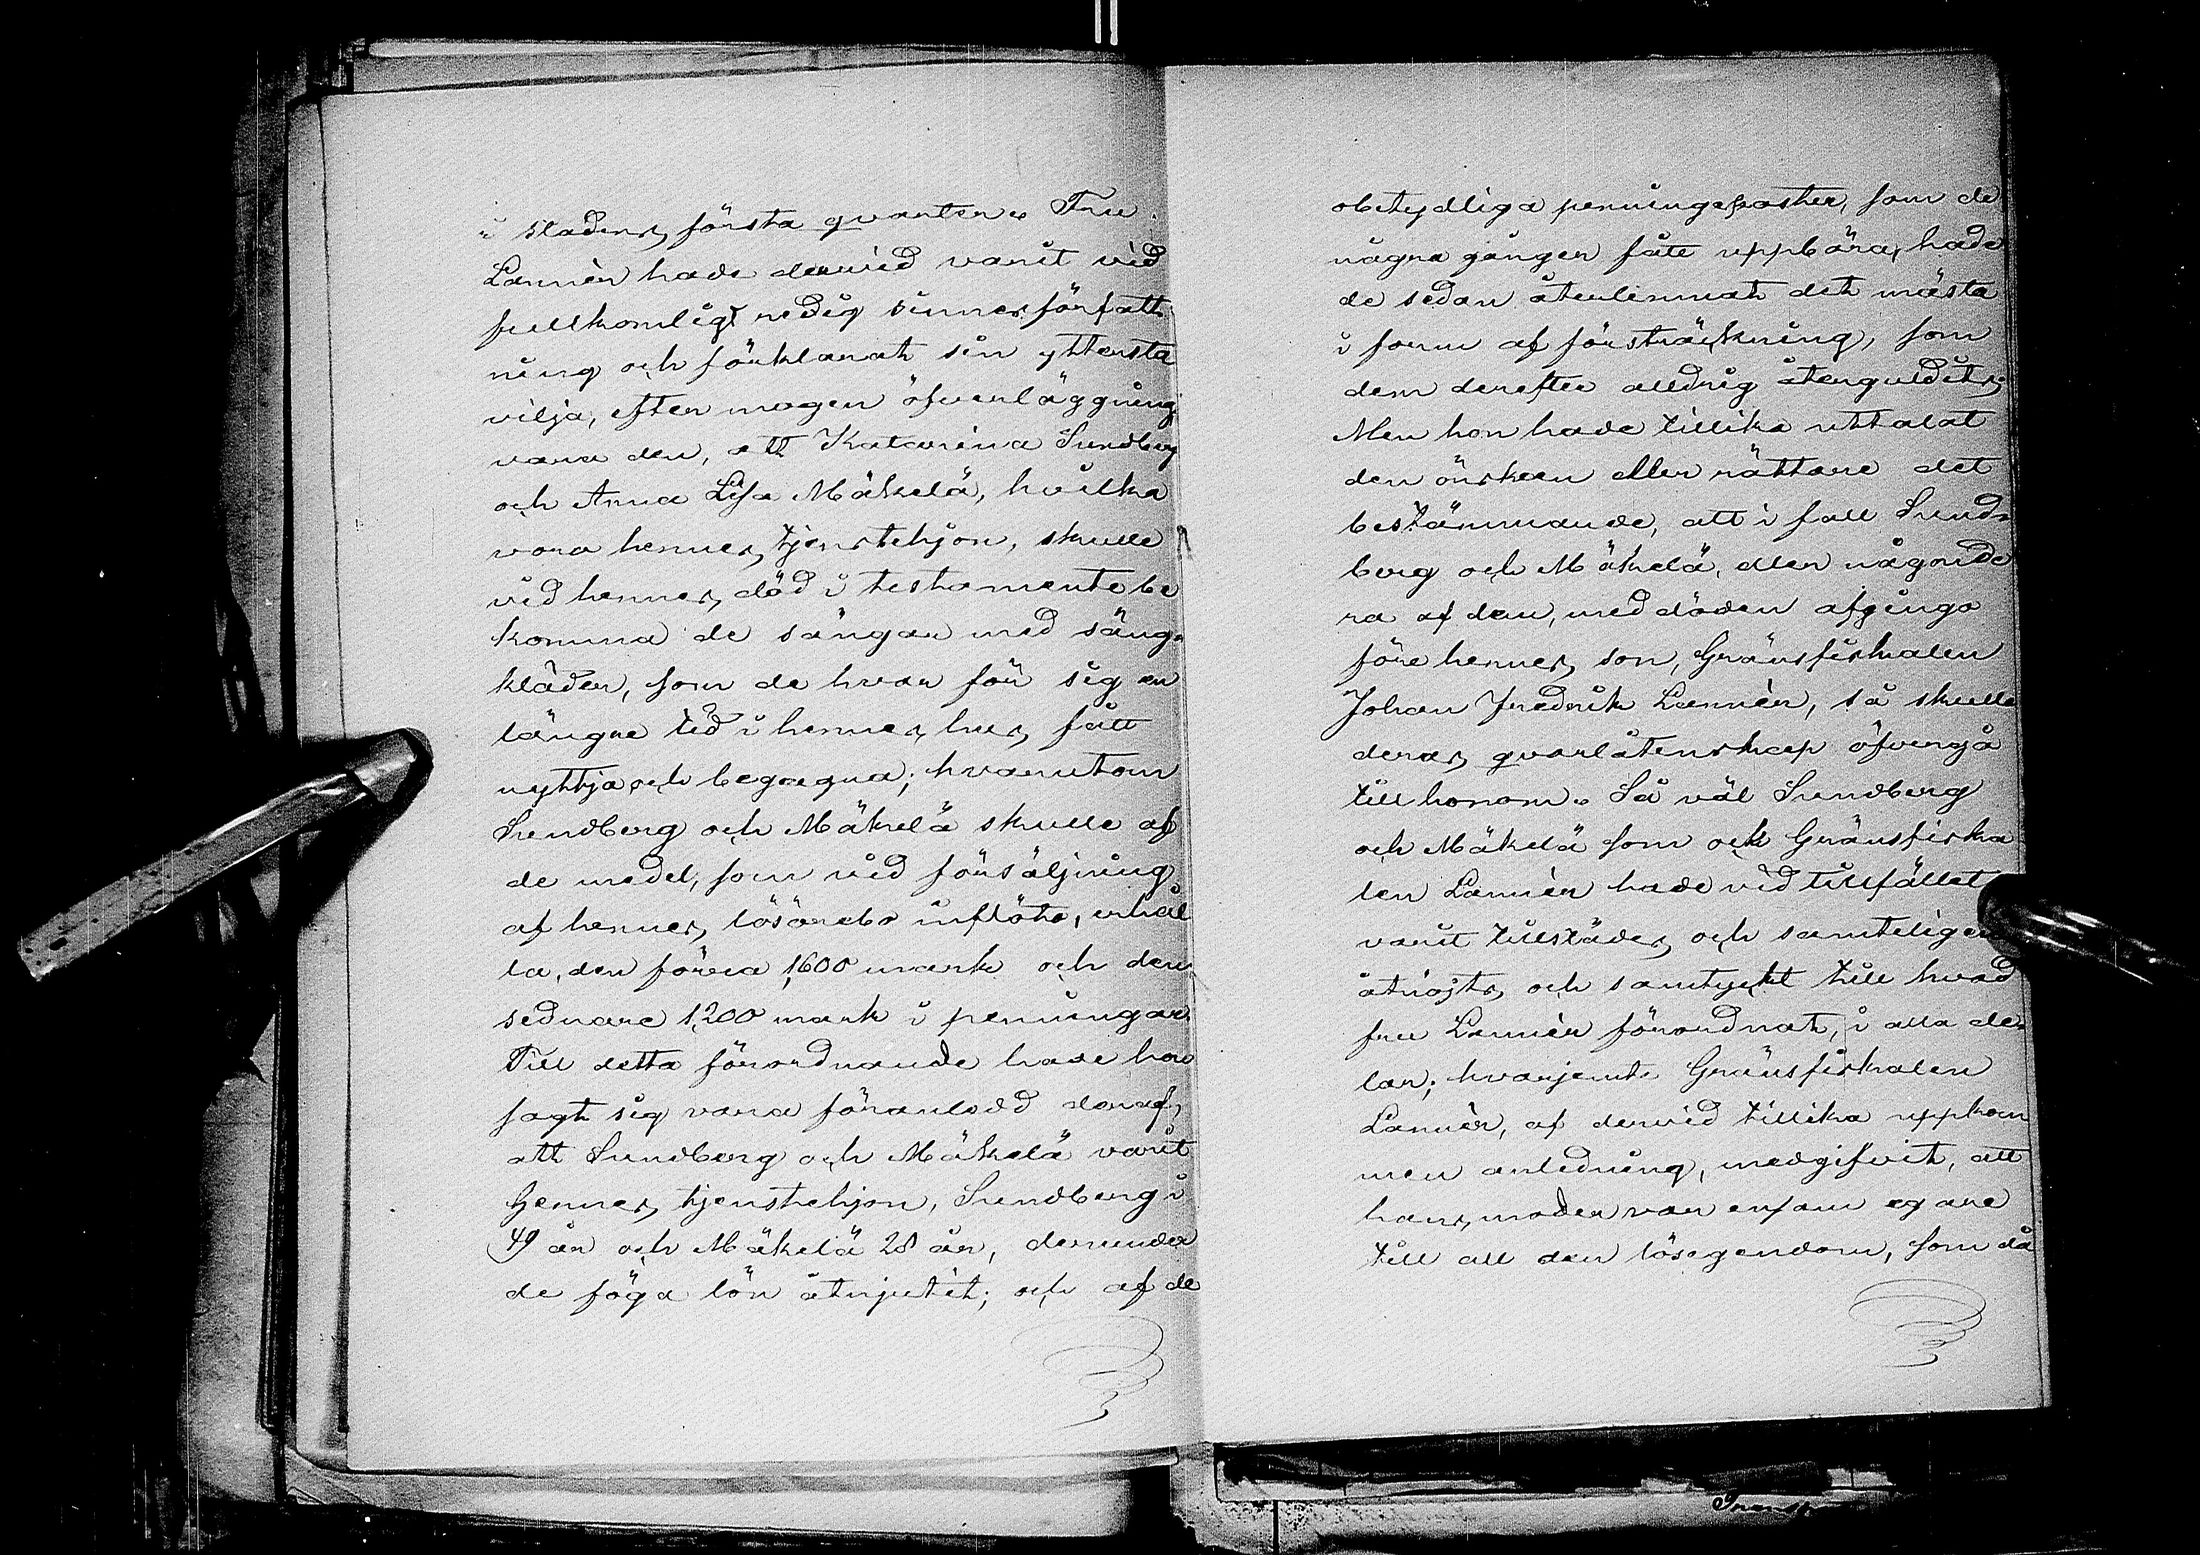 i stadens första qvarter. Fru
Lannér hade dervid varit vid
fullkomligt redig sinnesförfatt-
ning och förklarat sin yttersta
vilja, efter mogen öfverläggning
vara den, att Katarina Sundberg
och Anna Lisa Mäkelä, hvilka
vora hennes tjenstehjon, skulle
vid hennes död i testamente be
komma de sängar med säng-
kläder, som de hvar för sig en
längre tid i hennes hus fått
nyttja och begagna; hvarutom
Sundberg och Mäkelä skulle af
de medel, som vid försäljning
af hennes lösörebo inflöte, erhål
la, den förra 1,600 mark och den
sednare 1,200 mark i penningar.
Till detta förordnande hade hon
sagt sig vara föranledd deraf,
att Sundberg och Mäkelä varit
hennes tjenstehjon, Sundberg i
49 år och Mäkelä 28 år, derunder
de föga lön åtnjutit; och af de
obetydliga penningeposter, som de
några gånger fått uppbära, hade
de sedan återlemnat det mästa
i form af försträckning, som
dem derefter alldrig återguldits.
Men hon hade tillika uttalat
den önskan eller rättare det
bestämmande, att i fall Sund-
berg och Mäkelä, eller någonde
ra af dem, med döden afginge
före hennes son, Gränsfiskalen
Johan Fredrik Lannér, så skulle
deras qvarlåtenskap öfvergå
till honom. Så väl Sundberg
och Mäkelä som ock Gränsfiska
len Lannér hade vid tillfället
varit tillstädes och samteligen
åtnöjts och samtyckt till hvad
fru Lannér förordnat, i alla de-
lar; hvarjemte Gränsfiskalen
Lannér, af dervid tillika uppkom
men anledning, medgifvit, att
hans moder var ensam egare
till all den lösegendom, som då